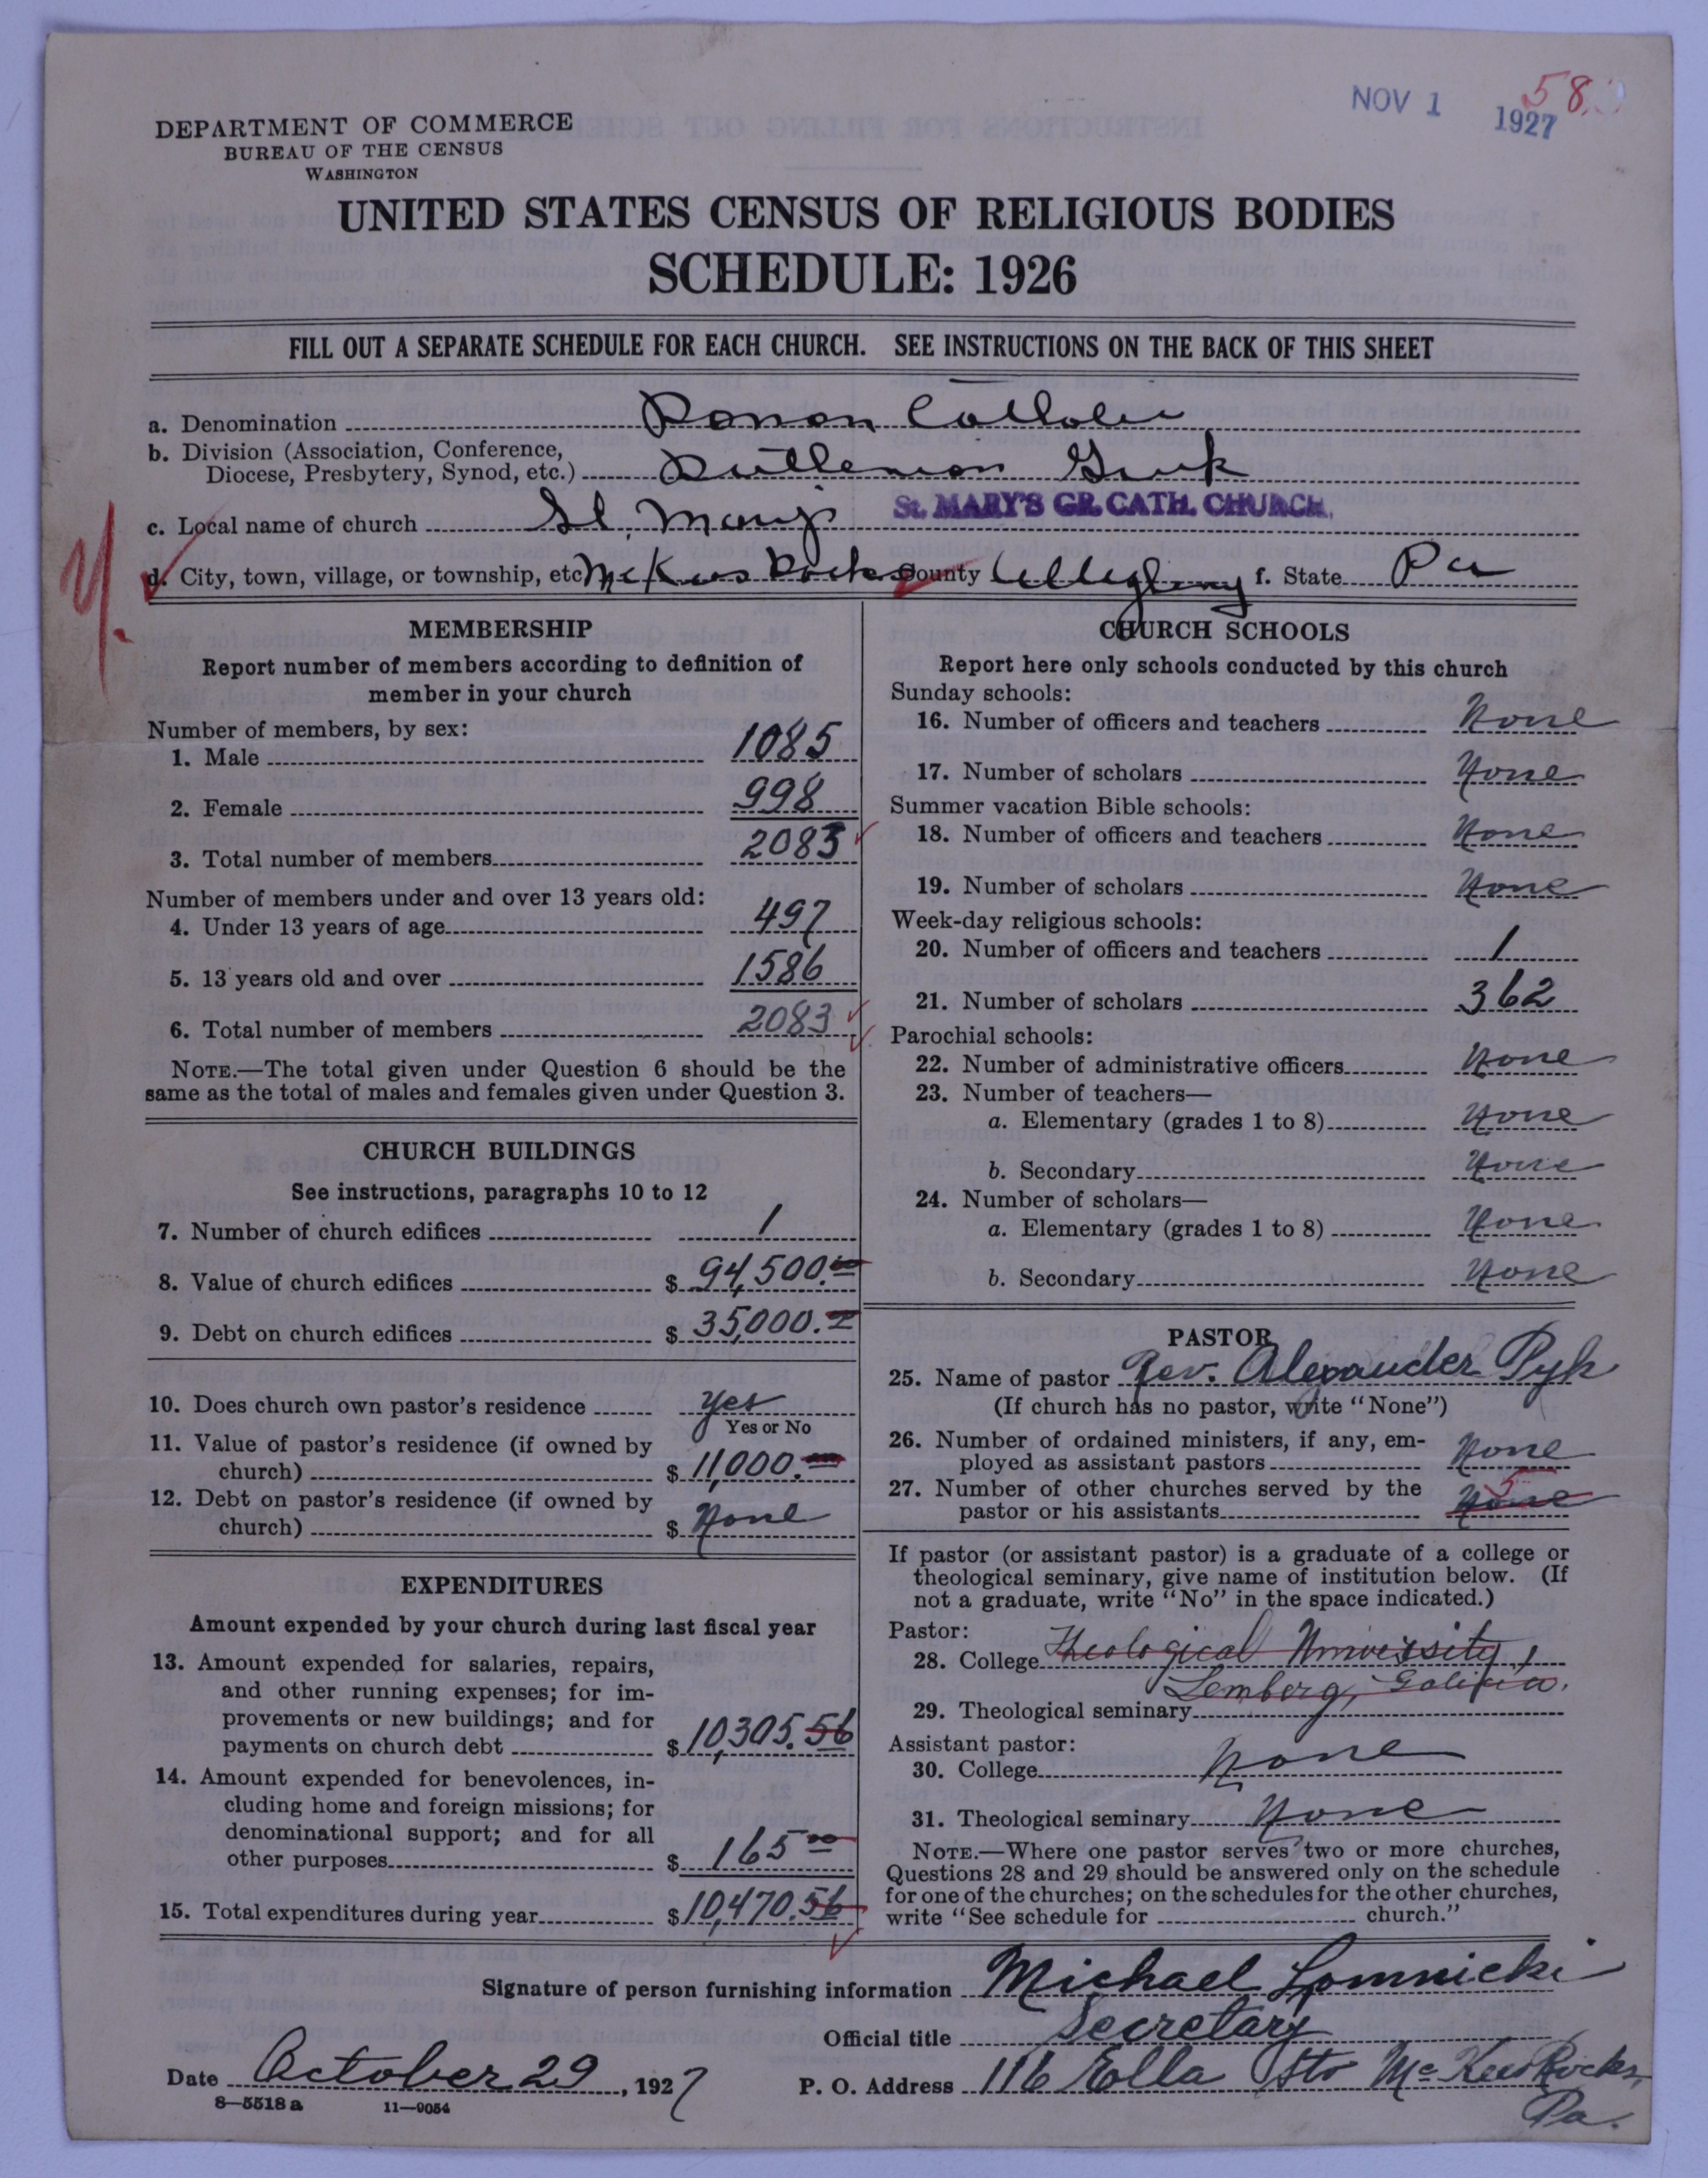 NOV 1 1927
58
DEPARTMENT OF COMMERCE
BUREAU OF THE CENSUS
WASHINGTON
UNITED STATES CENSUS OF RELIGIOUS BODIES
SCHEDULE: 1926
FILL OUT A SEPARATE SCHEDULE FOR EACH CHURCH. SEE INSTRUCTIONS ON THE BACK OF THIS SHEET
a. Denomination Roman Catholic
b. Division (Association, Conference,
Diocese, Presbytery, Synod, etc.) Ruthenian Greek
c. Local name of church St. Mary's St. MARY'S GR. CATH. CHURCH.
d. City, town, village, or township, etc McKees Rocks County Allegheny f. State Pa
MEMBERSHIP
Report number of members according to definition of
member in your church
Number of members, by sex:
1. Male 1085
2. Female 998
3. Total number of members 2083
Number of members under and over 13 years old:
4. Under 13 years of age 497
5. 13 years old and over 1586
6. Total number of members 2083
NOTE.—The total given under Question 6 should be the
same as the total of males and females given under Question 3.
CHURCH BUILDINGS
See instructions, paragraphs 10 to 12
7. Number of church edifices 1
8. Value of church edifices $ 94,500.00
9. Debt on church edifices $ 35,000.
10. Does church own pastor's residence yes
Yes or No
11. Value of pastor's residence (if owned by
church) $ 11,000.
12. Debt on pastor's residence (if owned by
church) $ None
EXPENDITURES
Amount expended by your church during last fiscal year
13. Amount expended for salaries, repairs,
and other running expenses; for im-
provements or new buildings; and for
payments on church debt $ 10,305.56
14. Amount expended for benevolences, in-
cluding home and foreign missions; for
denominational support; and for all
other purposes $ 165 00
15. Total expenditures during year $ 10,470.56
CHURCH SCHOOLS
Report here only schools conducted by this church
Sunday schools:
16. Number of officers and teachers None
17. Number of scholars None
Summer vacation Bible schools:
18. Number of officers and teachers None
19. Number of scholars None
Week-day religious schools:
20. Number of officers and teachers 1
21. Number of scholars 362
Parochial schools:
22. Number of administrative officers None
23. Number of teachers—
a. Elementary (grades 1 to 8) None
b. Secondary None
24. Number of scholars—
a. Elementary (grades 1 to 8) None
b. Secondary None
PASTOR
25. Name of pastor Rev. Alexander Pyk
(If church has no pastor, write "None")
26. Number of ordained ministers, if any, em-
ployed as assistant pastors None
27. Number of other churches served by the
pastor or his assistants None
If pastor (or assistant pastor) is a graduate of a college or
theological seminary, give name of institution below. (If
not a graduate, write "No" in the space indicated.)
Pastor:
28. College Theological University,
Lemberg, Galicia.
29. Theological seminary
Assistant pastor:
30. College None
31. Theological seminary None
NOTE.—Where one pastor serves two or more churches,
Questions 28 and 29 should be answered only on the schedule
for one of the churches; on the schedules for the other churches,
write "See schedule for church."
Signature of person furnishing information Michael Lomnicki
Official title Secretary
Date October 29, 1927 P. O. Address 116 Ella Str McKees Rocks,
Pa.
8—5518 a 11—9054